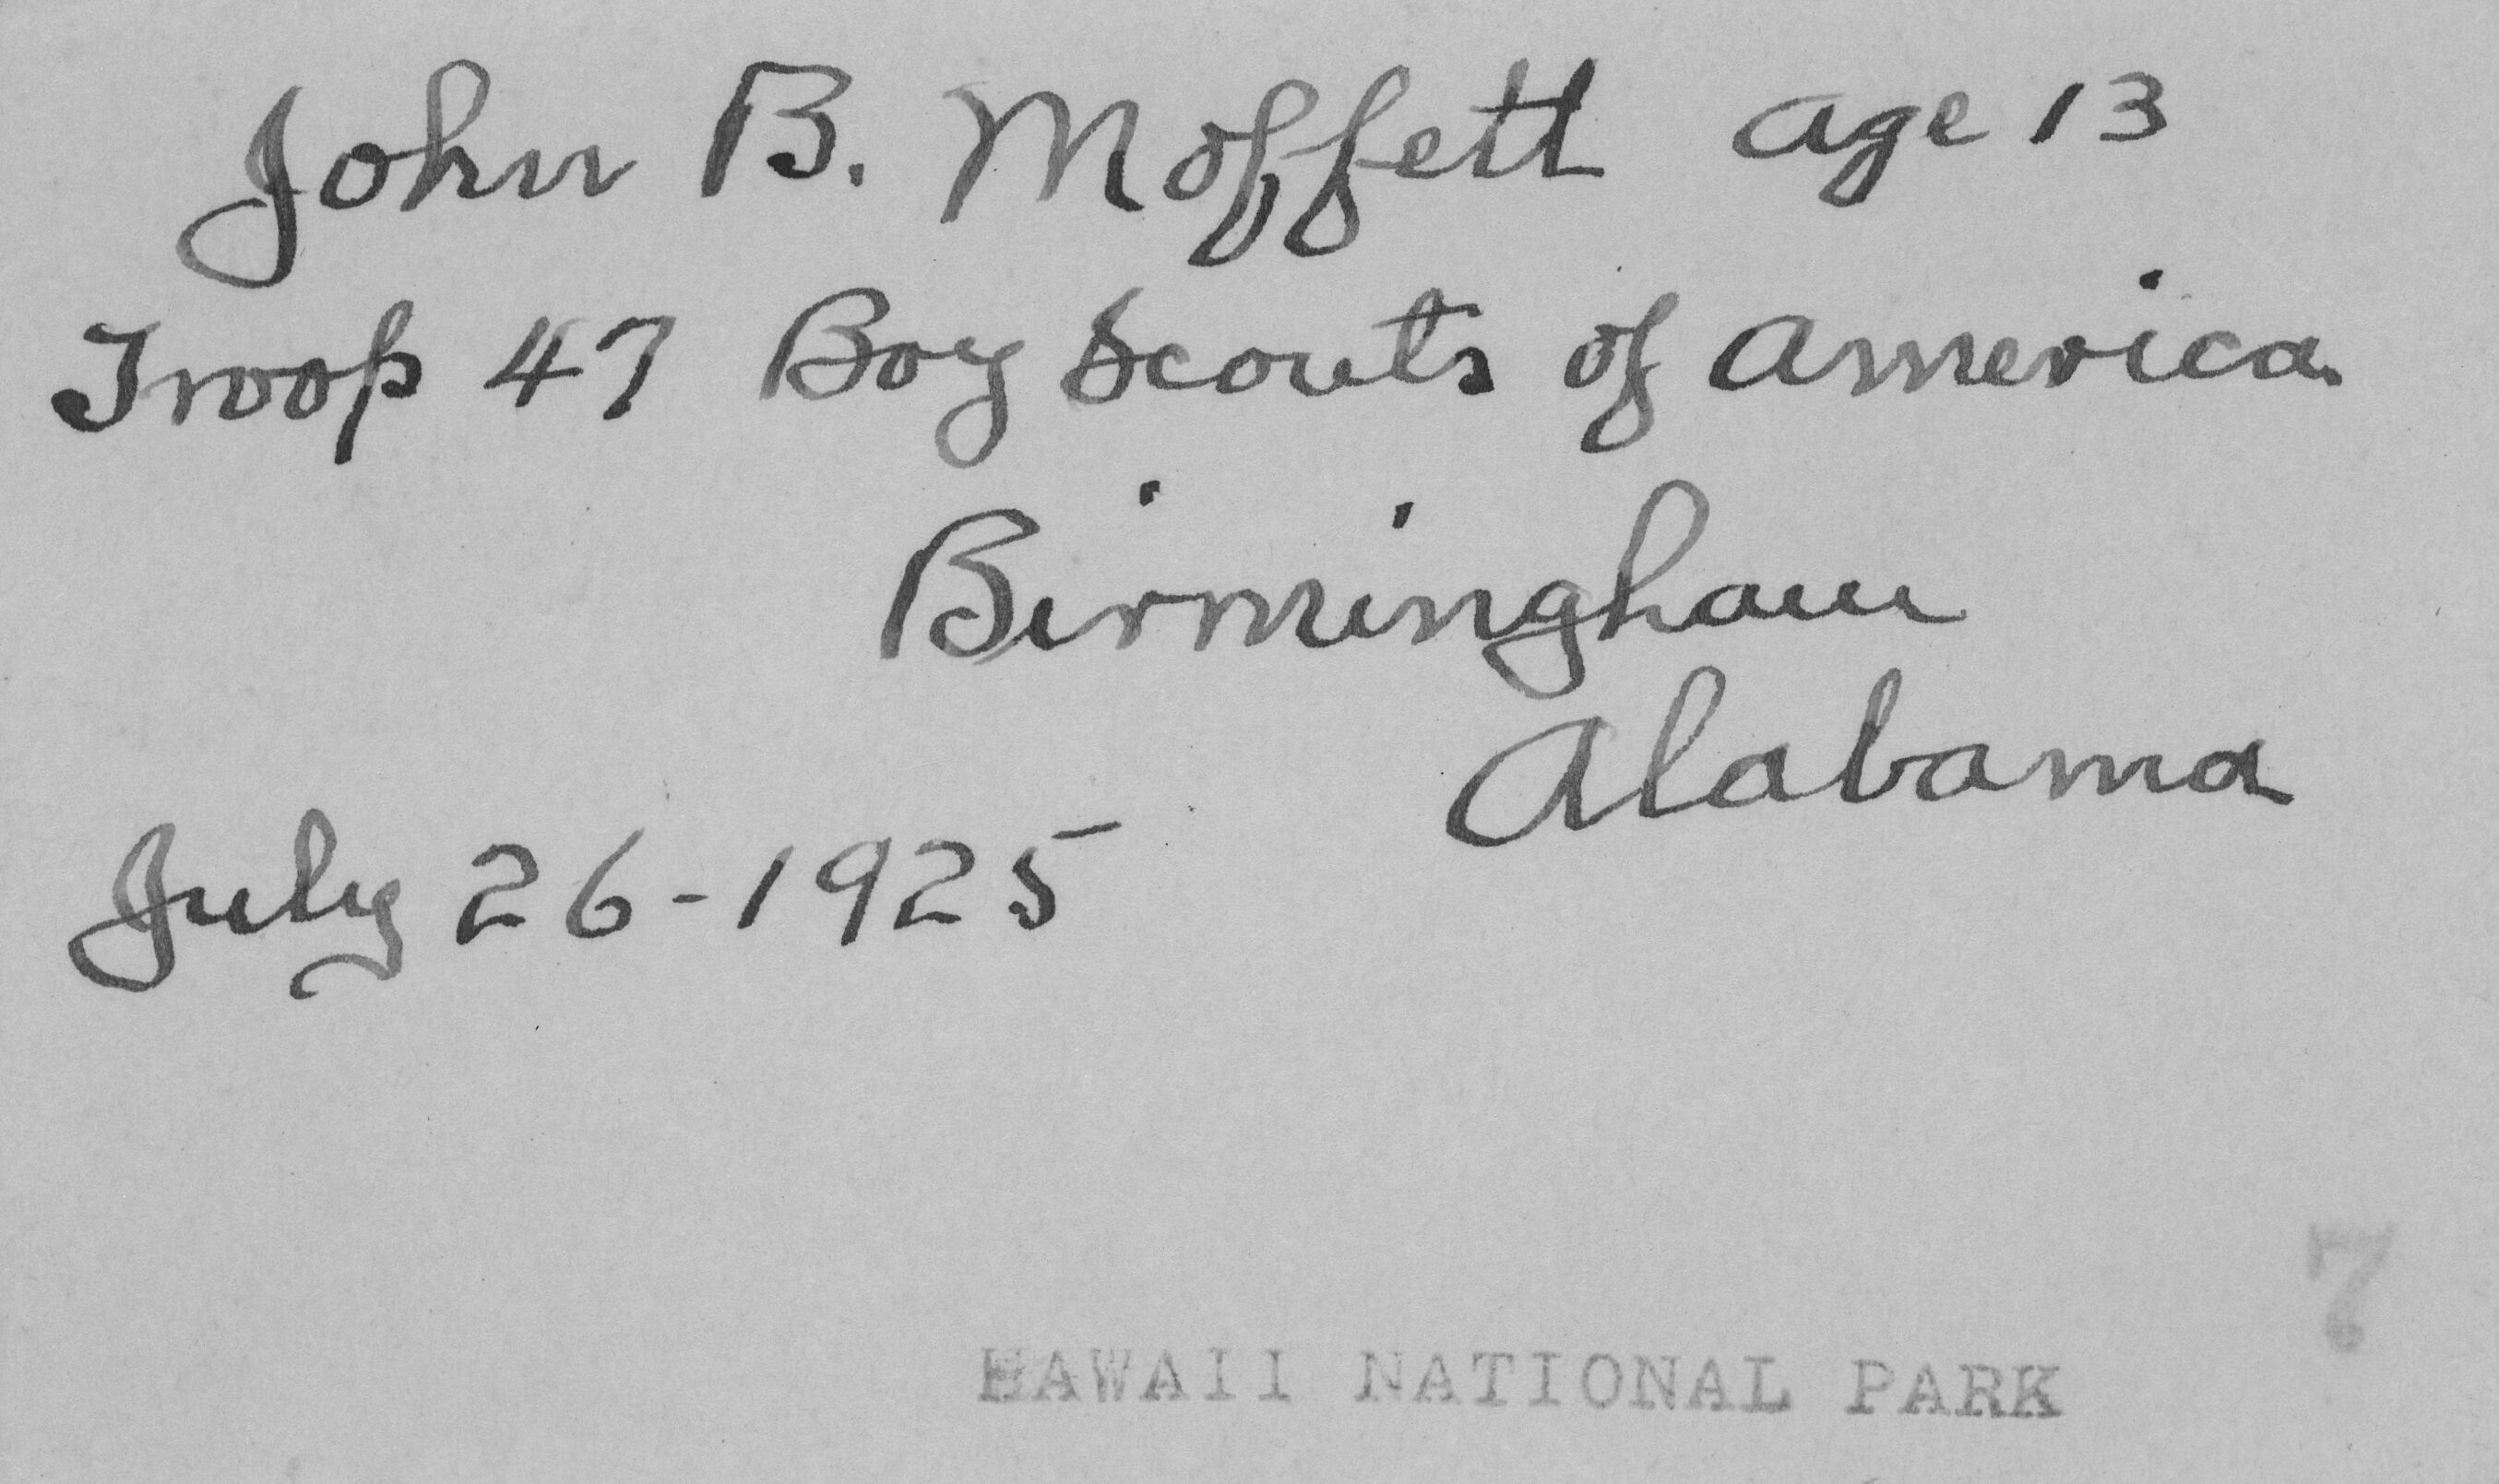 John B. Moffett age 13
Troop 47 Boy Scouts of America.
Birmingham
Alabama
July 26-1925
7
HAWAII NATIONAL PARK